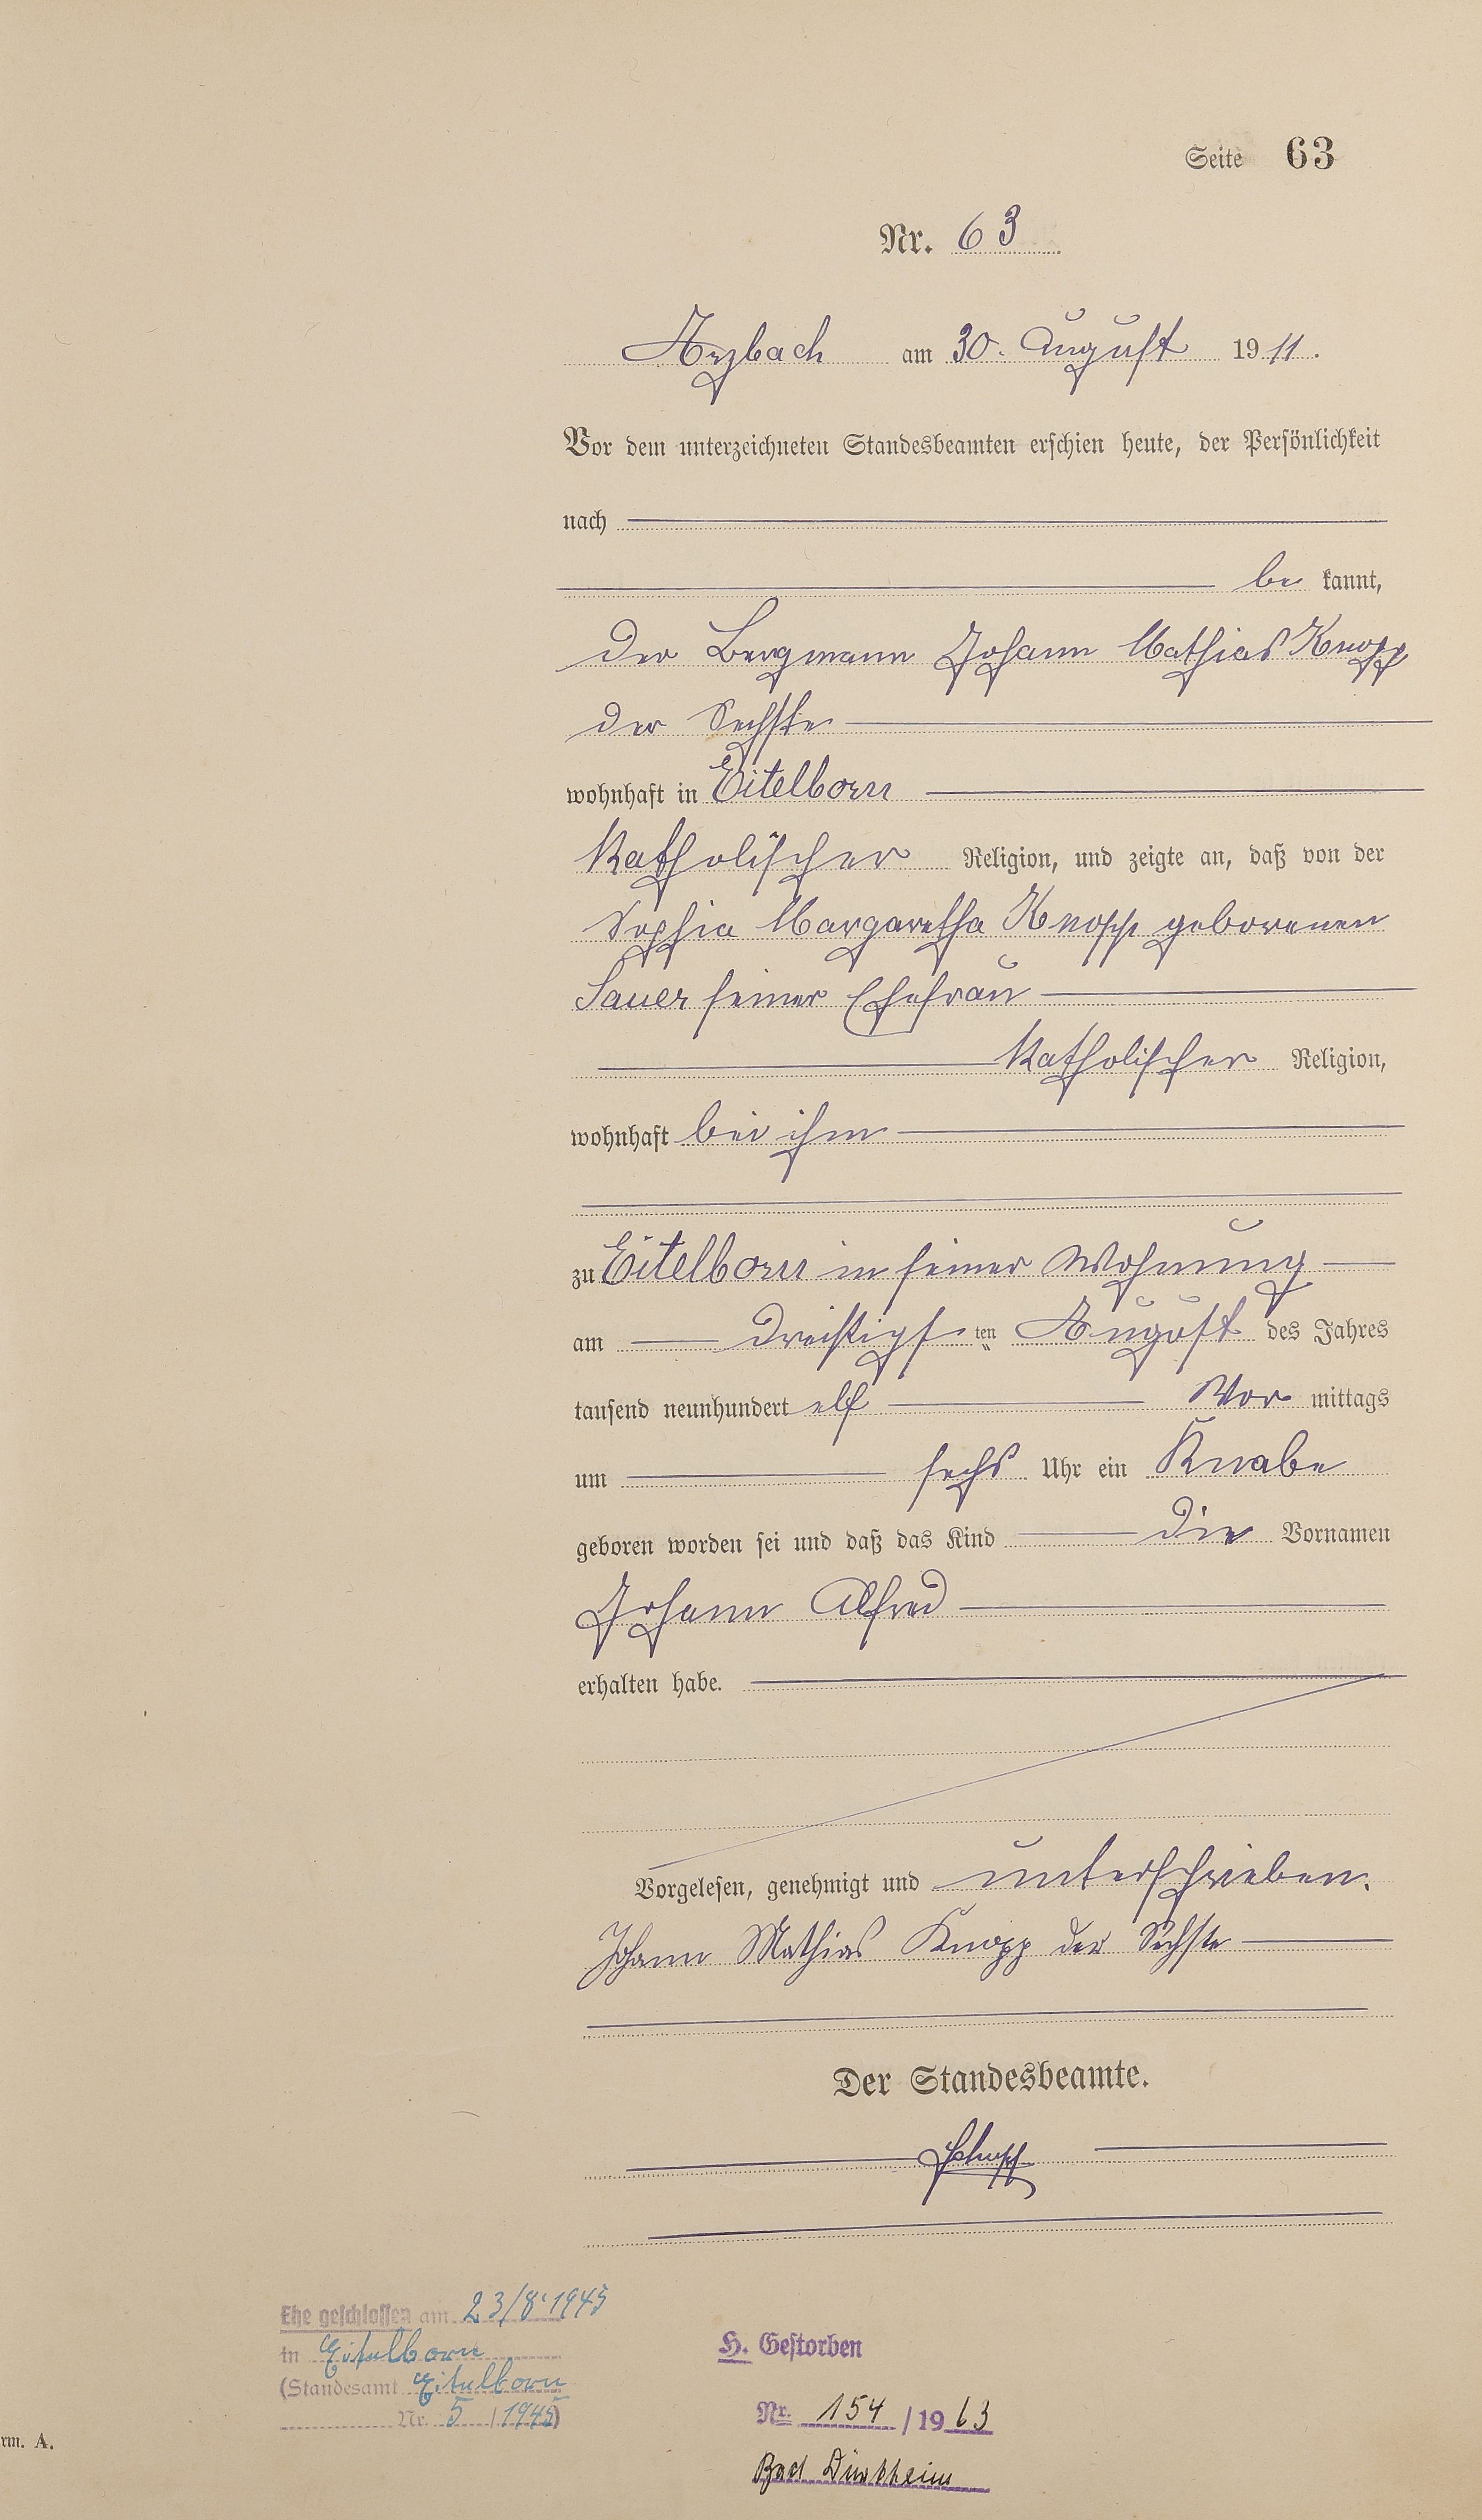 Seite 63
Nr. 63
Arzbach am 30. August 1911.
Vor dem unterzeichneten Standesbeamten erschien heute, der Persönlichkeit
nach
be kannt,
der Bergmann Johann Mathias Knopp
der Sechste
wohnhaft in Eitelborn
katholischer Religion, und zeigte an, daß von der
Sophia Margaretha Knopp geborenen
Sauer seiner Ehefrau
katholischer Religion,
wohnhaft bei ihm
zu Eitelborn in seiner Wohnung
am dreißigsten August des Jahres
tausend neunhundert elf Vor mittags
um sechs Uhr ein Knabe
geboren worden sei und daß das Kind die Vornamen
Johann Alfred
erhalten habe.
Vorgelesen, genehmigt und unterschrieben.
Johann Mathias Knopp der Sechste
Der Standesbeamte.
Ehe geschlossen am 23/8. 1945
in Eitelborn
(Standesamt Eitelborn
Nr. 5 / 1945)
H. Gestorben
Nr. 154 / 1963
Bad Dürkheim
rm. A.